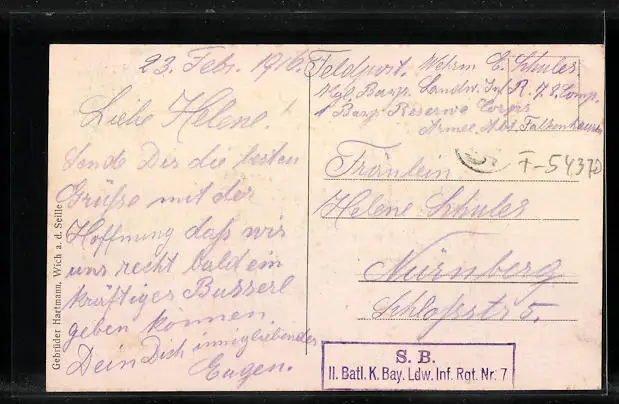 23. Febr. 1916.
Liebe Helene!
Sende Dir die besten
Grüße mit der
Hoffnung daß wir
uns recht bald ein
kräftiges Busserl
geben können.
Dein Dich innigliebender
Eugen.
Feldpost. Wehrm E. Schules
Kgl. Bayr. Landw. Inf. R. 7. 2. Comp.
1 Bayr. Reserve Corps
Armee Abt. Falkenhausen
F-54370
Fräulein
Helene Schules
Nürnberg
Schloßstr 5.
S. B.
II. Batl. K. Bay. Ldw. Inf. Rgt. Nr. 7
Gebrüder Hartmann, Wich a. d. Seille